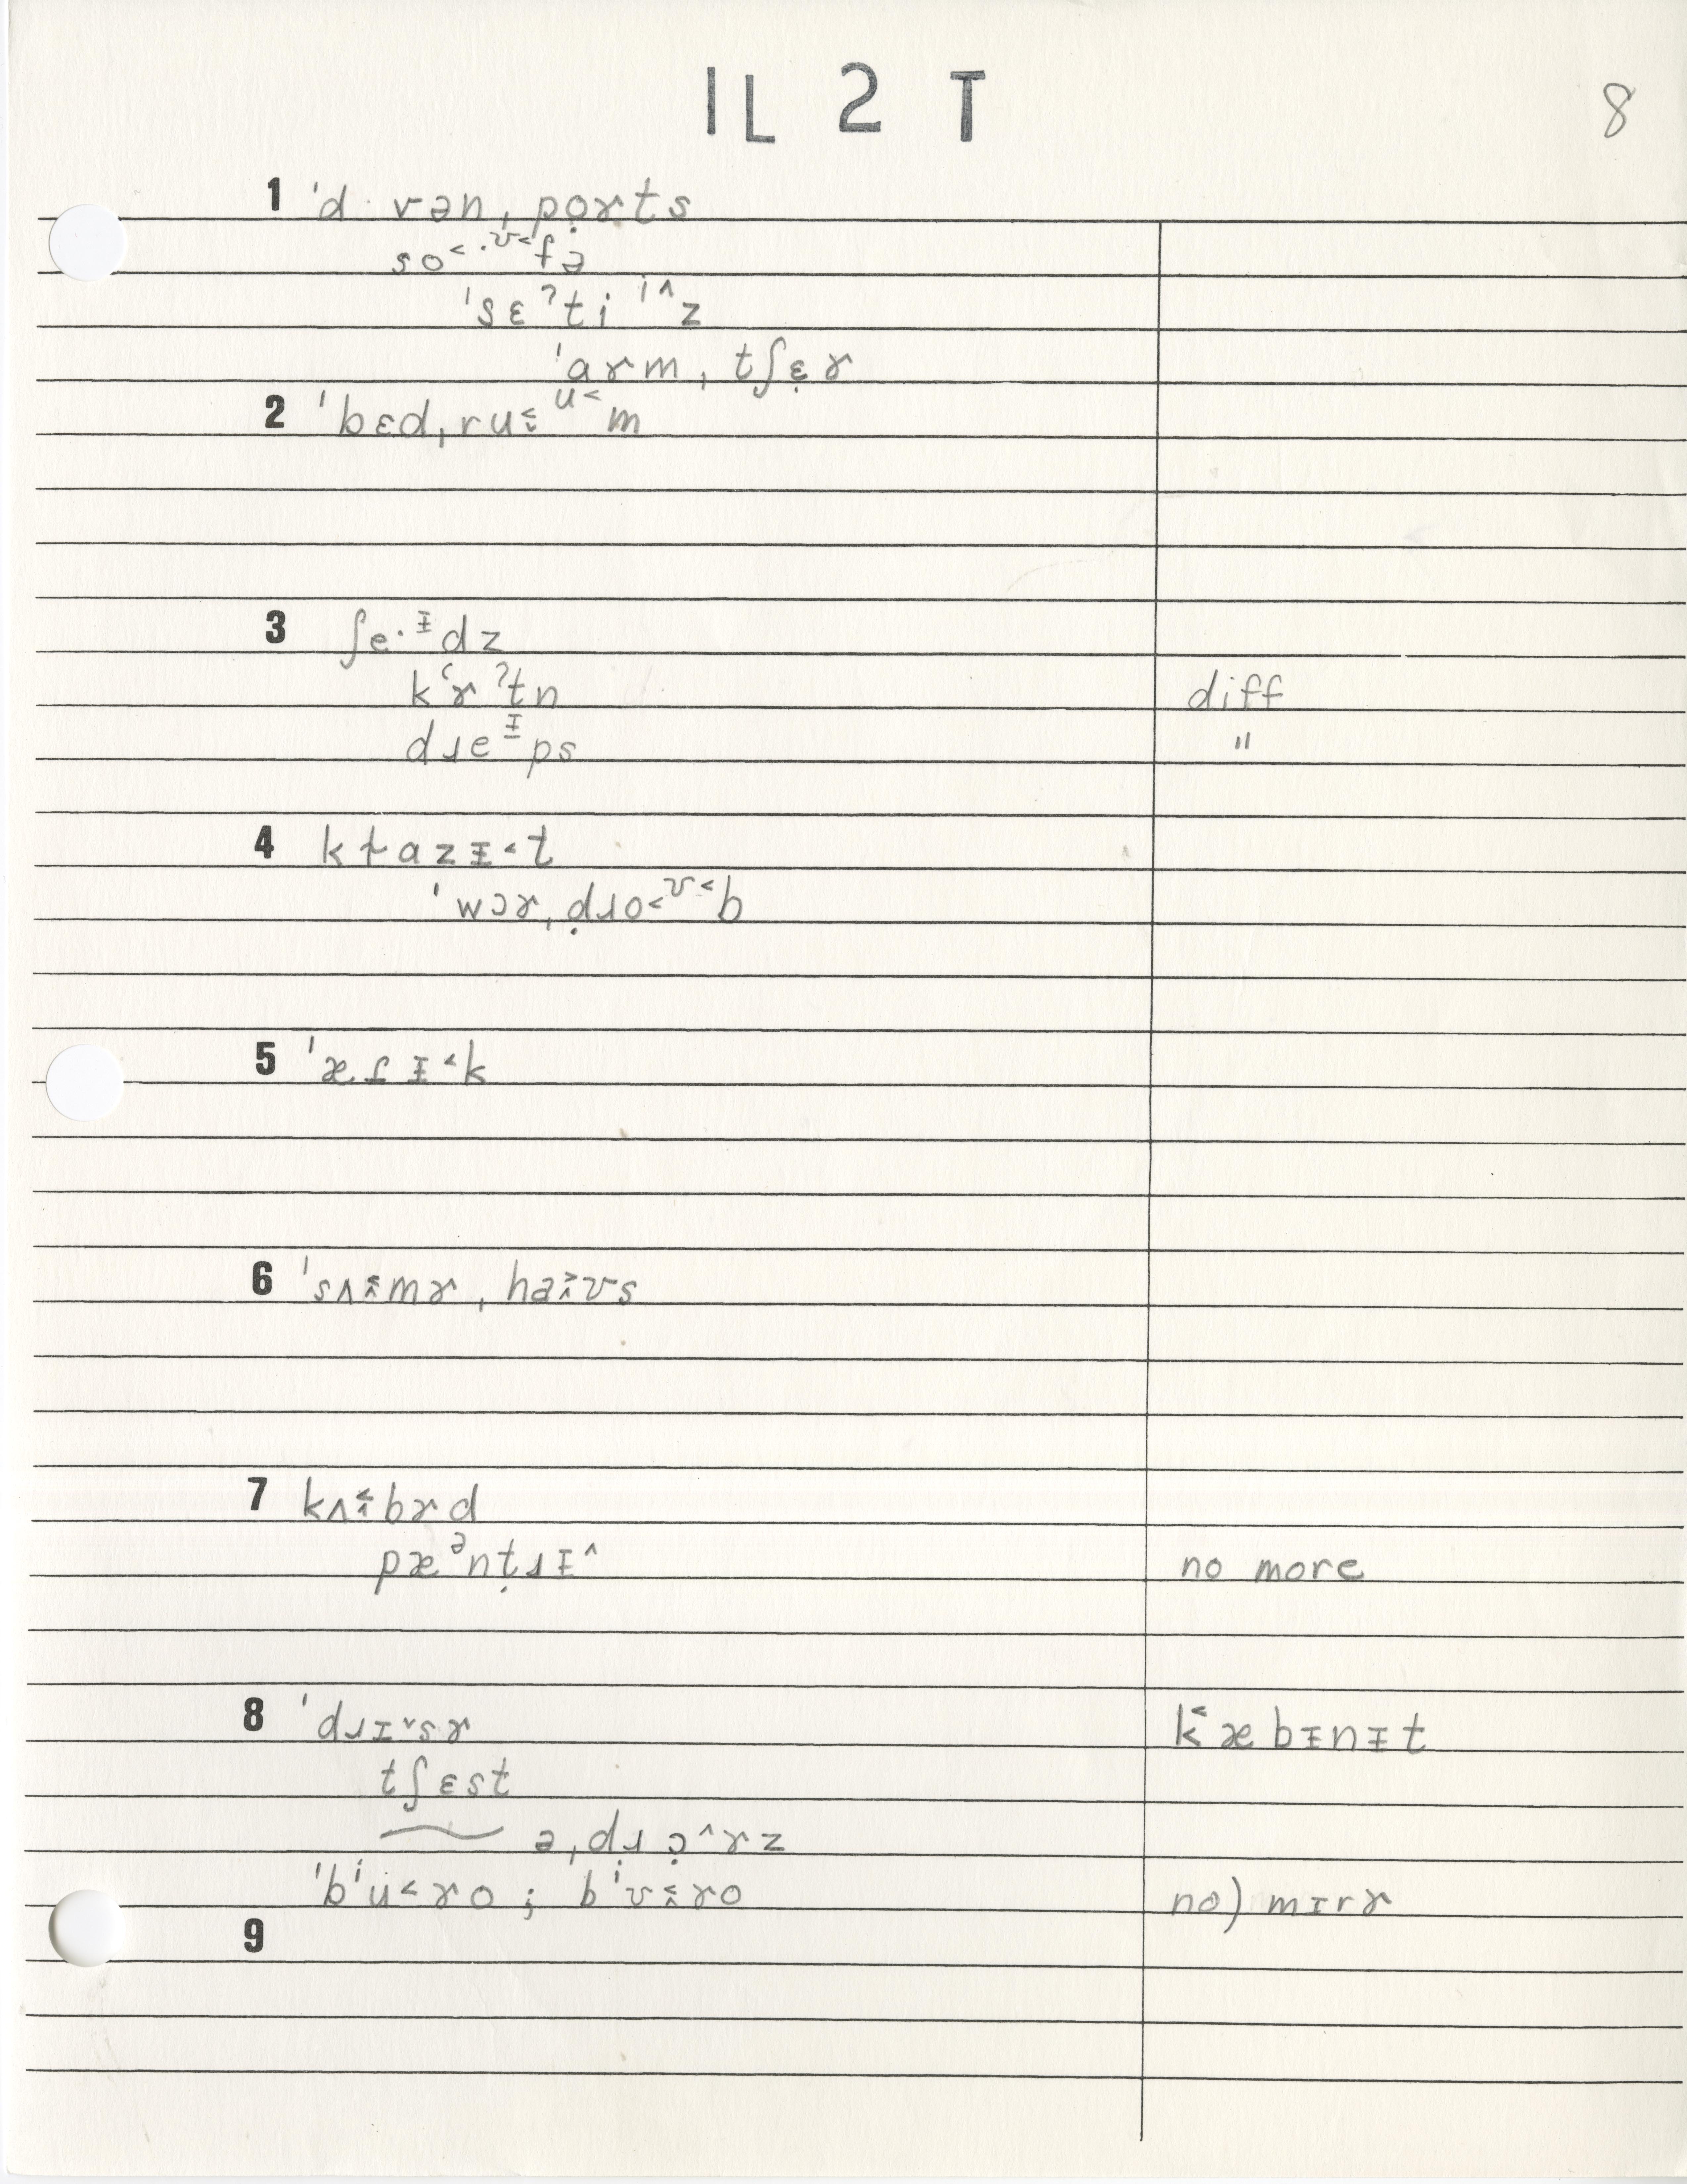 IL 2 T 8
1 ˈd vən ˌpo̩ɤts
so˂·ʊ˂fə
ˈsɛˀti i^z
ˈaɤm ˌtʃɛ̣ɤ
2 ˈbɛd ˌru˂̬ u˂m
3 ʃe·ᵻdz
kʻɤˀtn diff
dɹeᵻps "
4 kɫazᵻ˂t
ˈwɔɤ ˌḍɹo˂ʊ˂b
5 ˈæɾᵻ˂k
6 ˈsʌ˂̭mɤ ˌha˃̭ʊs
7 kʌ˂̭bɤd
pæᵊnṭɹᵻ^ no more
8 ˈdɹɪˇsɤ k˂æbᵻnᵻt
tʃɛst
ə ˌḍɹɔ̣^ɤz
ˈbⁱu˂ɤo ; bⁱʊ˂̭ɤo no) mɪrɤ
9